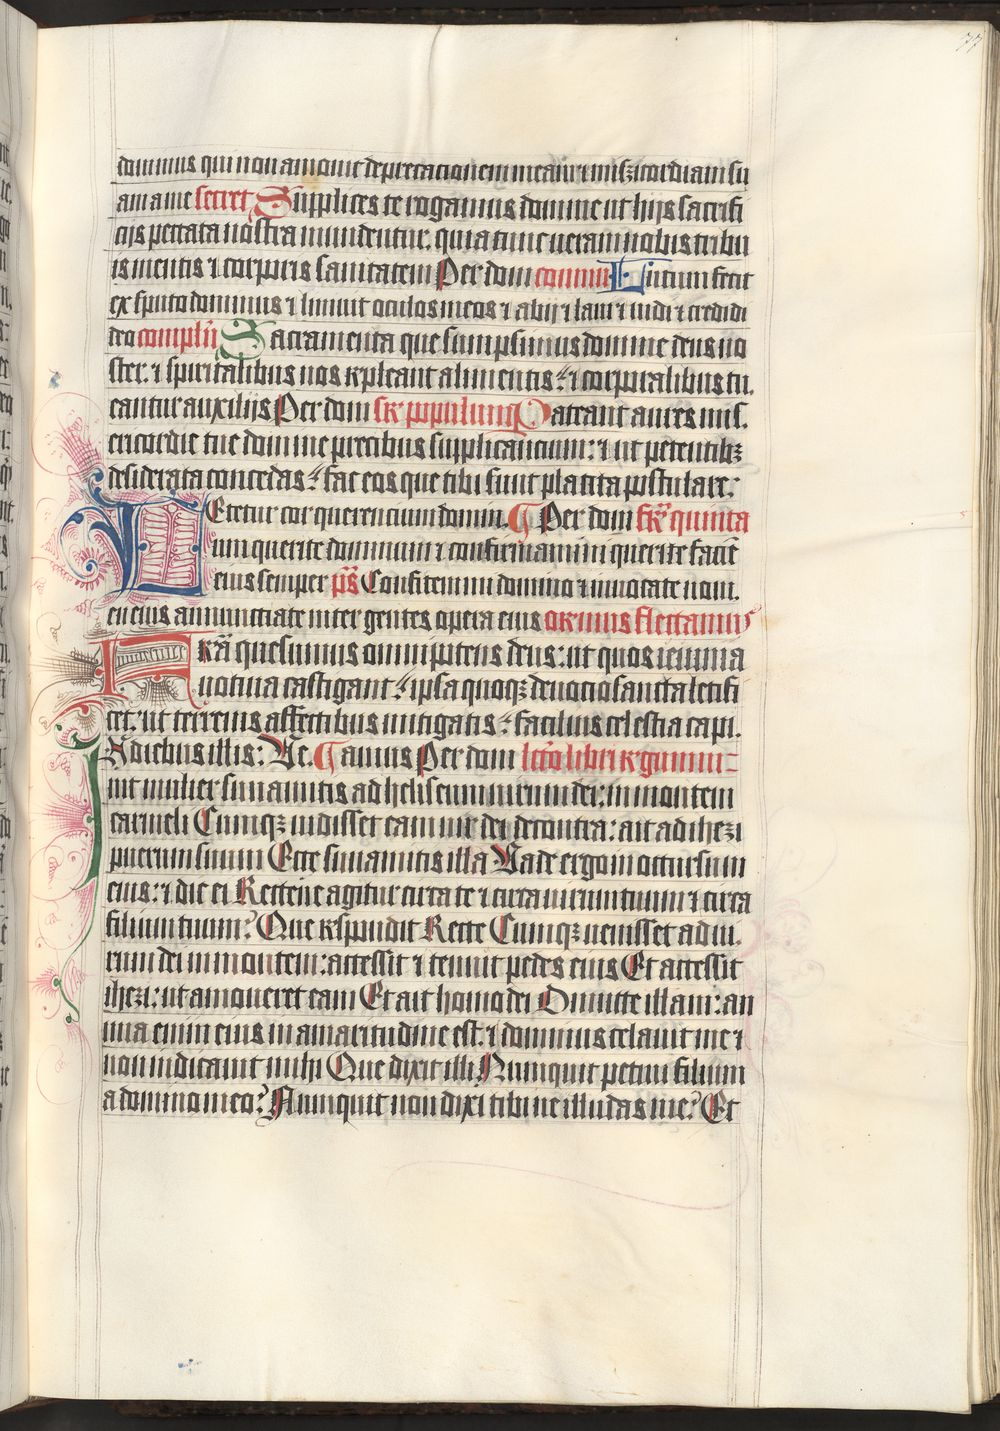 77
dominus qui non amouit deprecationem meam ⁊ misericordiam su
am a me secret Supplices te rogamus domine ut hijs sacrifi
cijs peccata nostra mundentur. quia tunc ueram nobis tribu
is mentis ⁊ corporis sanitatem Per dom commu Lutum fecit
ex sputo dominus ⁊ liniuit oculos meos ⁊ abij ⁊ laui ⁊ uidi ⁊ credidi
deo complen̄ Sacramenta que sumpsimus domine deus no
ster. ⁊ spiritalibus nos repleant alimentis: ⁊ corporalibus tu.
eantur auxilijs Per dom sr̄ populum Pateant aures mis.
ericordie tue domine precibus supplicancium: ⁊ ut petentibꝫ
desiderata concedas: fac eos que tibi sunt placita postulare:
Letetur cor querencium domin. Per dom fr̄ quinta
um querite dominum ⁊ confirmamini querite facie
eius semper p̄s Confitemini domino ⁊ inuocate nom.
en eius annunctiate inter gentes opera eius oremus flectamus
Pr̄a quesumus omnipotens deus: ut quos ieiunia
uotiua castigant: ipsa quoqꝫ deuocio sancta letifi
cet. ut terrenis affectibus mitigatis: facilius celestia capi.
In diebus illis: Ve. amus Per dom lc̄to libri regnum:
nit mulier sunamitis ad heliseum uirum dei: in montem
carmeli Cumqꝫ uidisset eam uir dei de contra: ait ad ihezi
puerum suum Ecce sunamitis illa Vade ergo in occursum
eius: ⁊ dic ei Rectene agitur circa te ⁊ circa uirum tuum ⁊ circa
filium tuum? Que respondit Recte Cumqꝫ uenisset ad ui.
rum dei in montem: accessit ⁊ tenuit pedes eius Et accessit
ihezi: ut amoueret eam Et ait homo dei Dimitte illam: an
ima enim eius in amaritudine est. ⁊ dominus celauit me ⁊
non indicauit mihi Que dixit illi Numquit petiui filium
a domino meo? Numquit non dixi tibi ne illudas me? Et